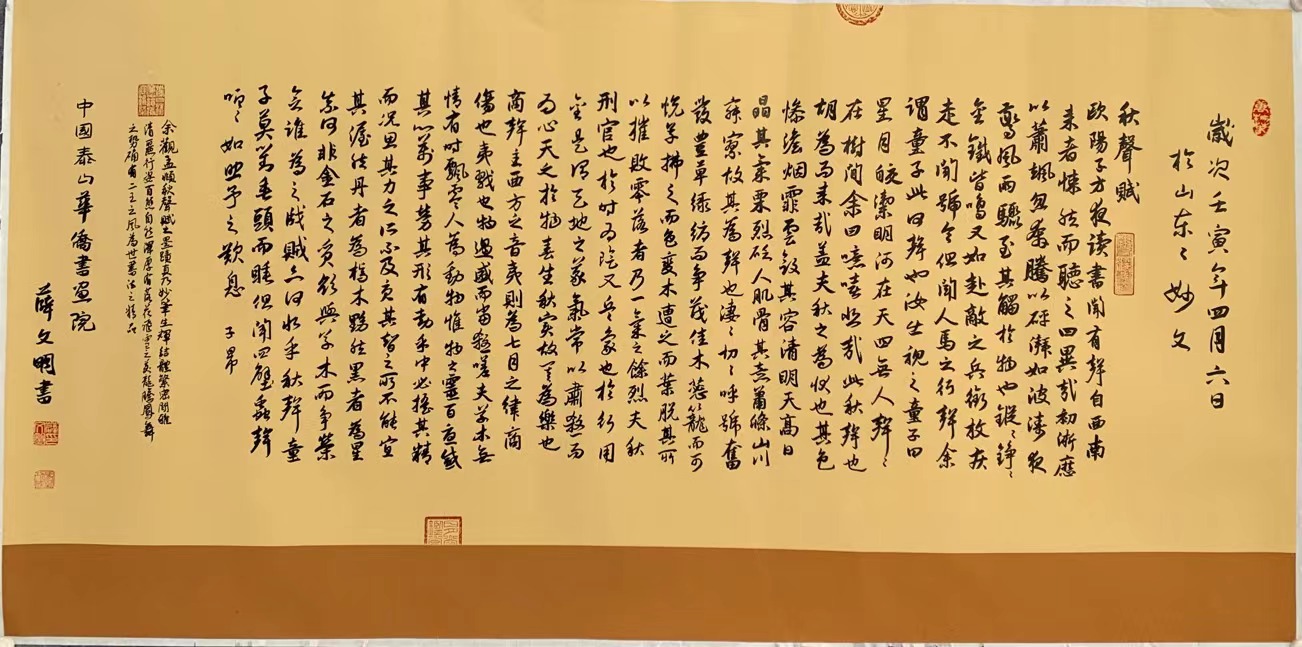 歲次壬寅年四月六日
於山东之妙文
秋聲賦
欧陽子方夜读書聞有聲自西南
来者悚然而聽之曰異哉初淅瀝
以蕭颯忽奔騰以砰湃如波濤夜
驚風雨驟至其觸於物也鏦〻錚〻
金鐵皆鳴又如赴敵之兵銜枚疾
走不聞號令但聞人馬之行聲余
謂童子此何聲也汝出視之童子曰
星月皎潔明河在天四無人聲〻
在樹間余曰噫嘻悲哉此秋聲也
胡為而来哉蓋夫秋之為状也其色
惨澹烟霏雲斂其容清明天高日
晶其氣栗烈砭人肌骨其意蕭條山川
寂寥故其為聲也凄〻切〻呼號奮
發豊草绿縟而争茂佳木葱籠而可
悦草拂之而色變木遭之而葉脱其所
以摧敗零落者乃一氣之餘烈夫秋
刑官也於时为陰又兵象也於行用
金是謂天地之義氣常以肅殺而
为心天之於物春生秋實故其為樂也
商聲主西方之音夷則為七月之律商
傷也夷戮也物過盛而當殺嗟夫草木無
情有时飄零人為動物惟物之靈百憂感
其心萬事勞其形有動乎中必摇其精
而况思其力之所不及憂其智之所不能宜
其渥然丹者為槁木黟然黑者為星
奈何非金石之質欲與草木而争榮
念誰為之戕賊亦何恨乎秋聲童
子莫對垂頭而睡但聞四壁蟲聲
喞〻如助予之歎息 子昂
余觀孟頫秋聲賦之墨蹟真乃妙筆生輝結體緊密閒雅
之势确有二王之風為世書法之精品
中國泰山華僑書画院
薛文明書